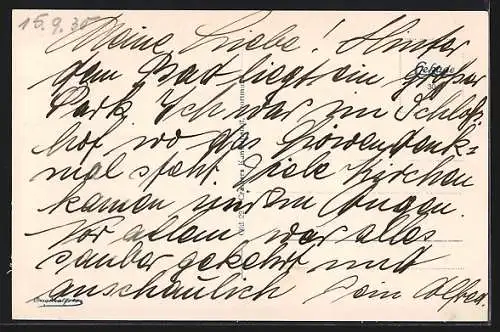 15.9.35
Meine Liebe! Hinter
dem Bad liegt ein großer
Park. Ich war im Schloß-
hof wo das Löwendenk-
mal steht. Viele Kirchen
kamen mir in Augen.
Vor allem war alles
sauber gekehrt und
anschaulich Dein Alfred.